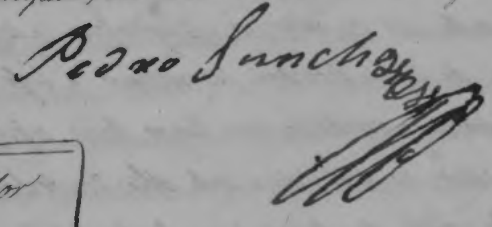 Pedro Sanches